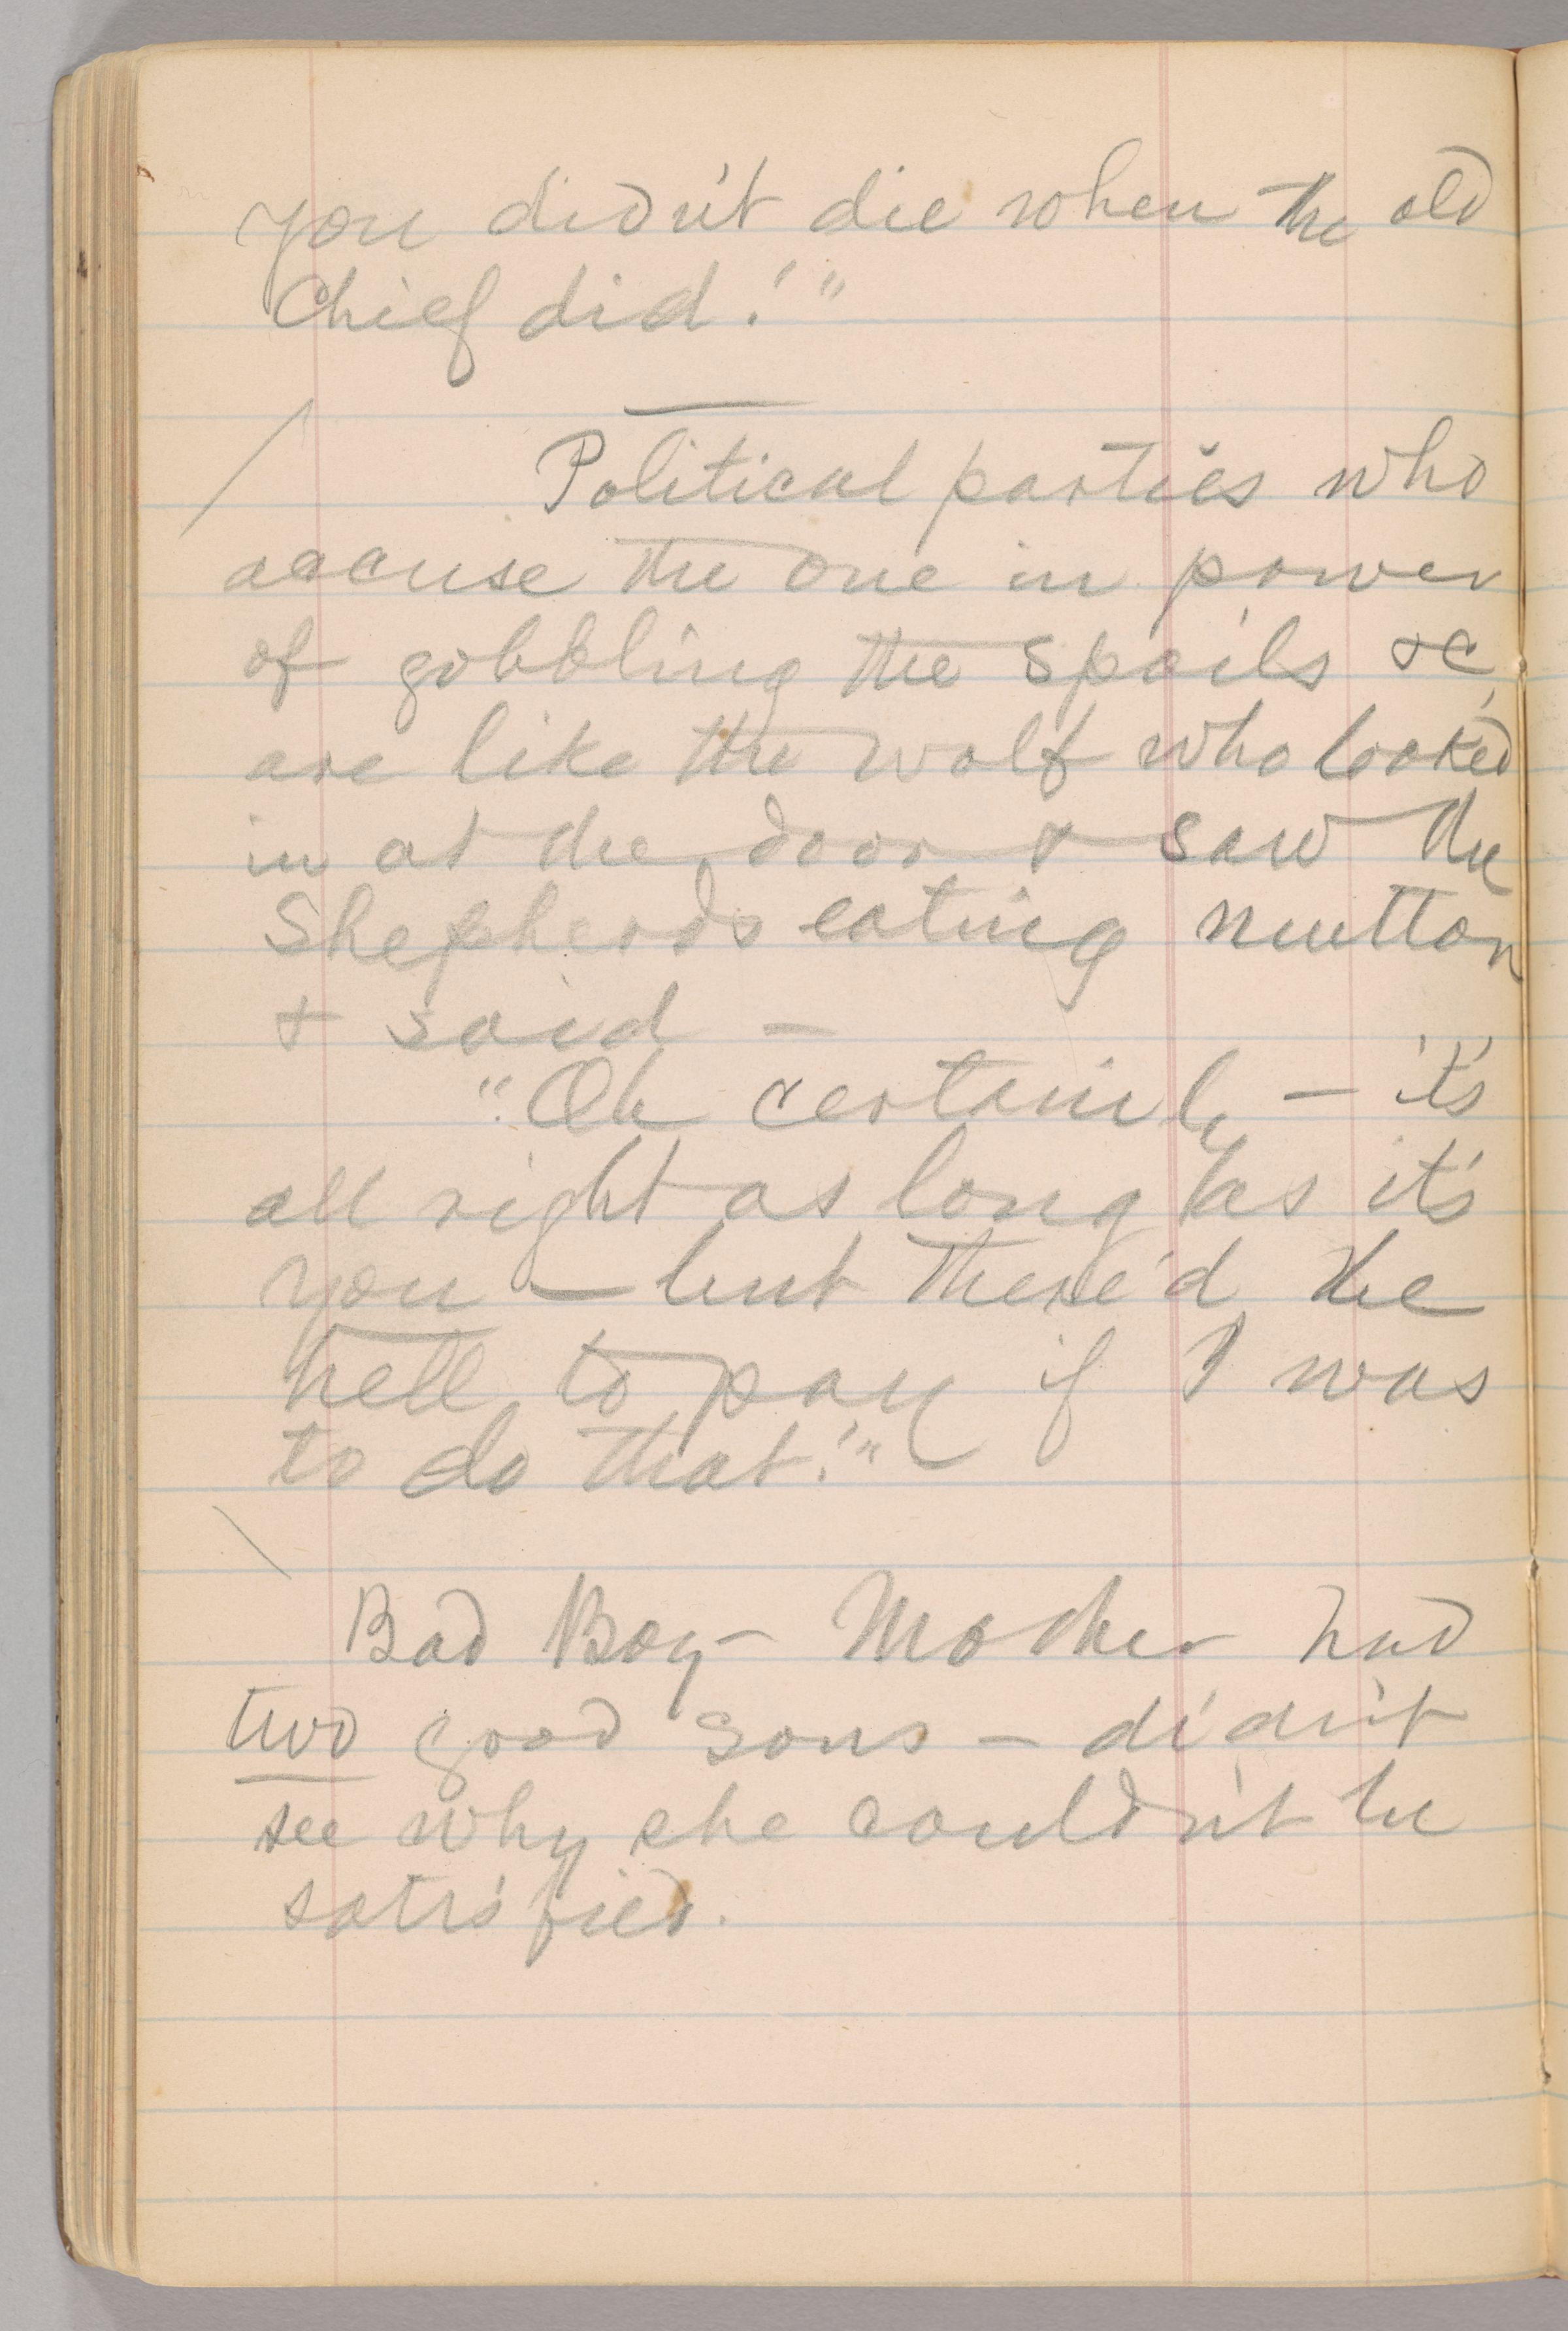 you didn't die when the old
Chief did!"
Political parties who
accuse the one in power
of gobbling the spoils &c,
are like the wolf who looked
in at the door & saw the
Shepherds eating mutton
& said —
"Oh certainly — it's
all right as long as it's
you — but there'd be
hell to pay if I was
to do that!"
Bad Boy — Mother had
two good sons — didn't
see why she couldn't be
satisfied.